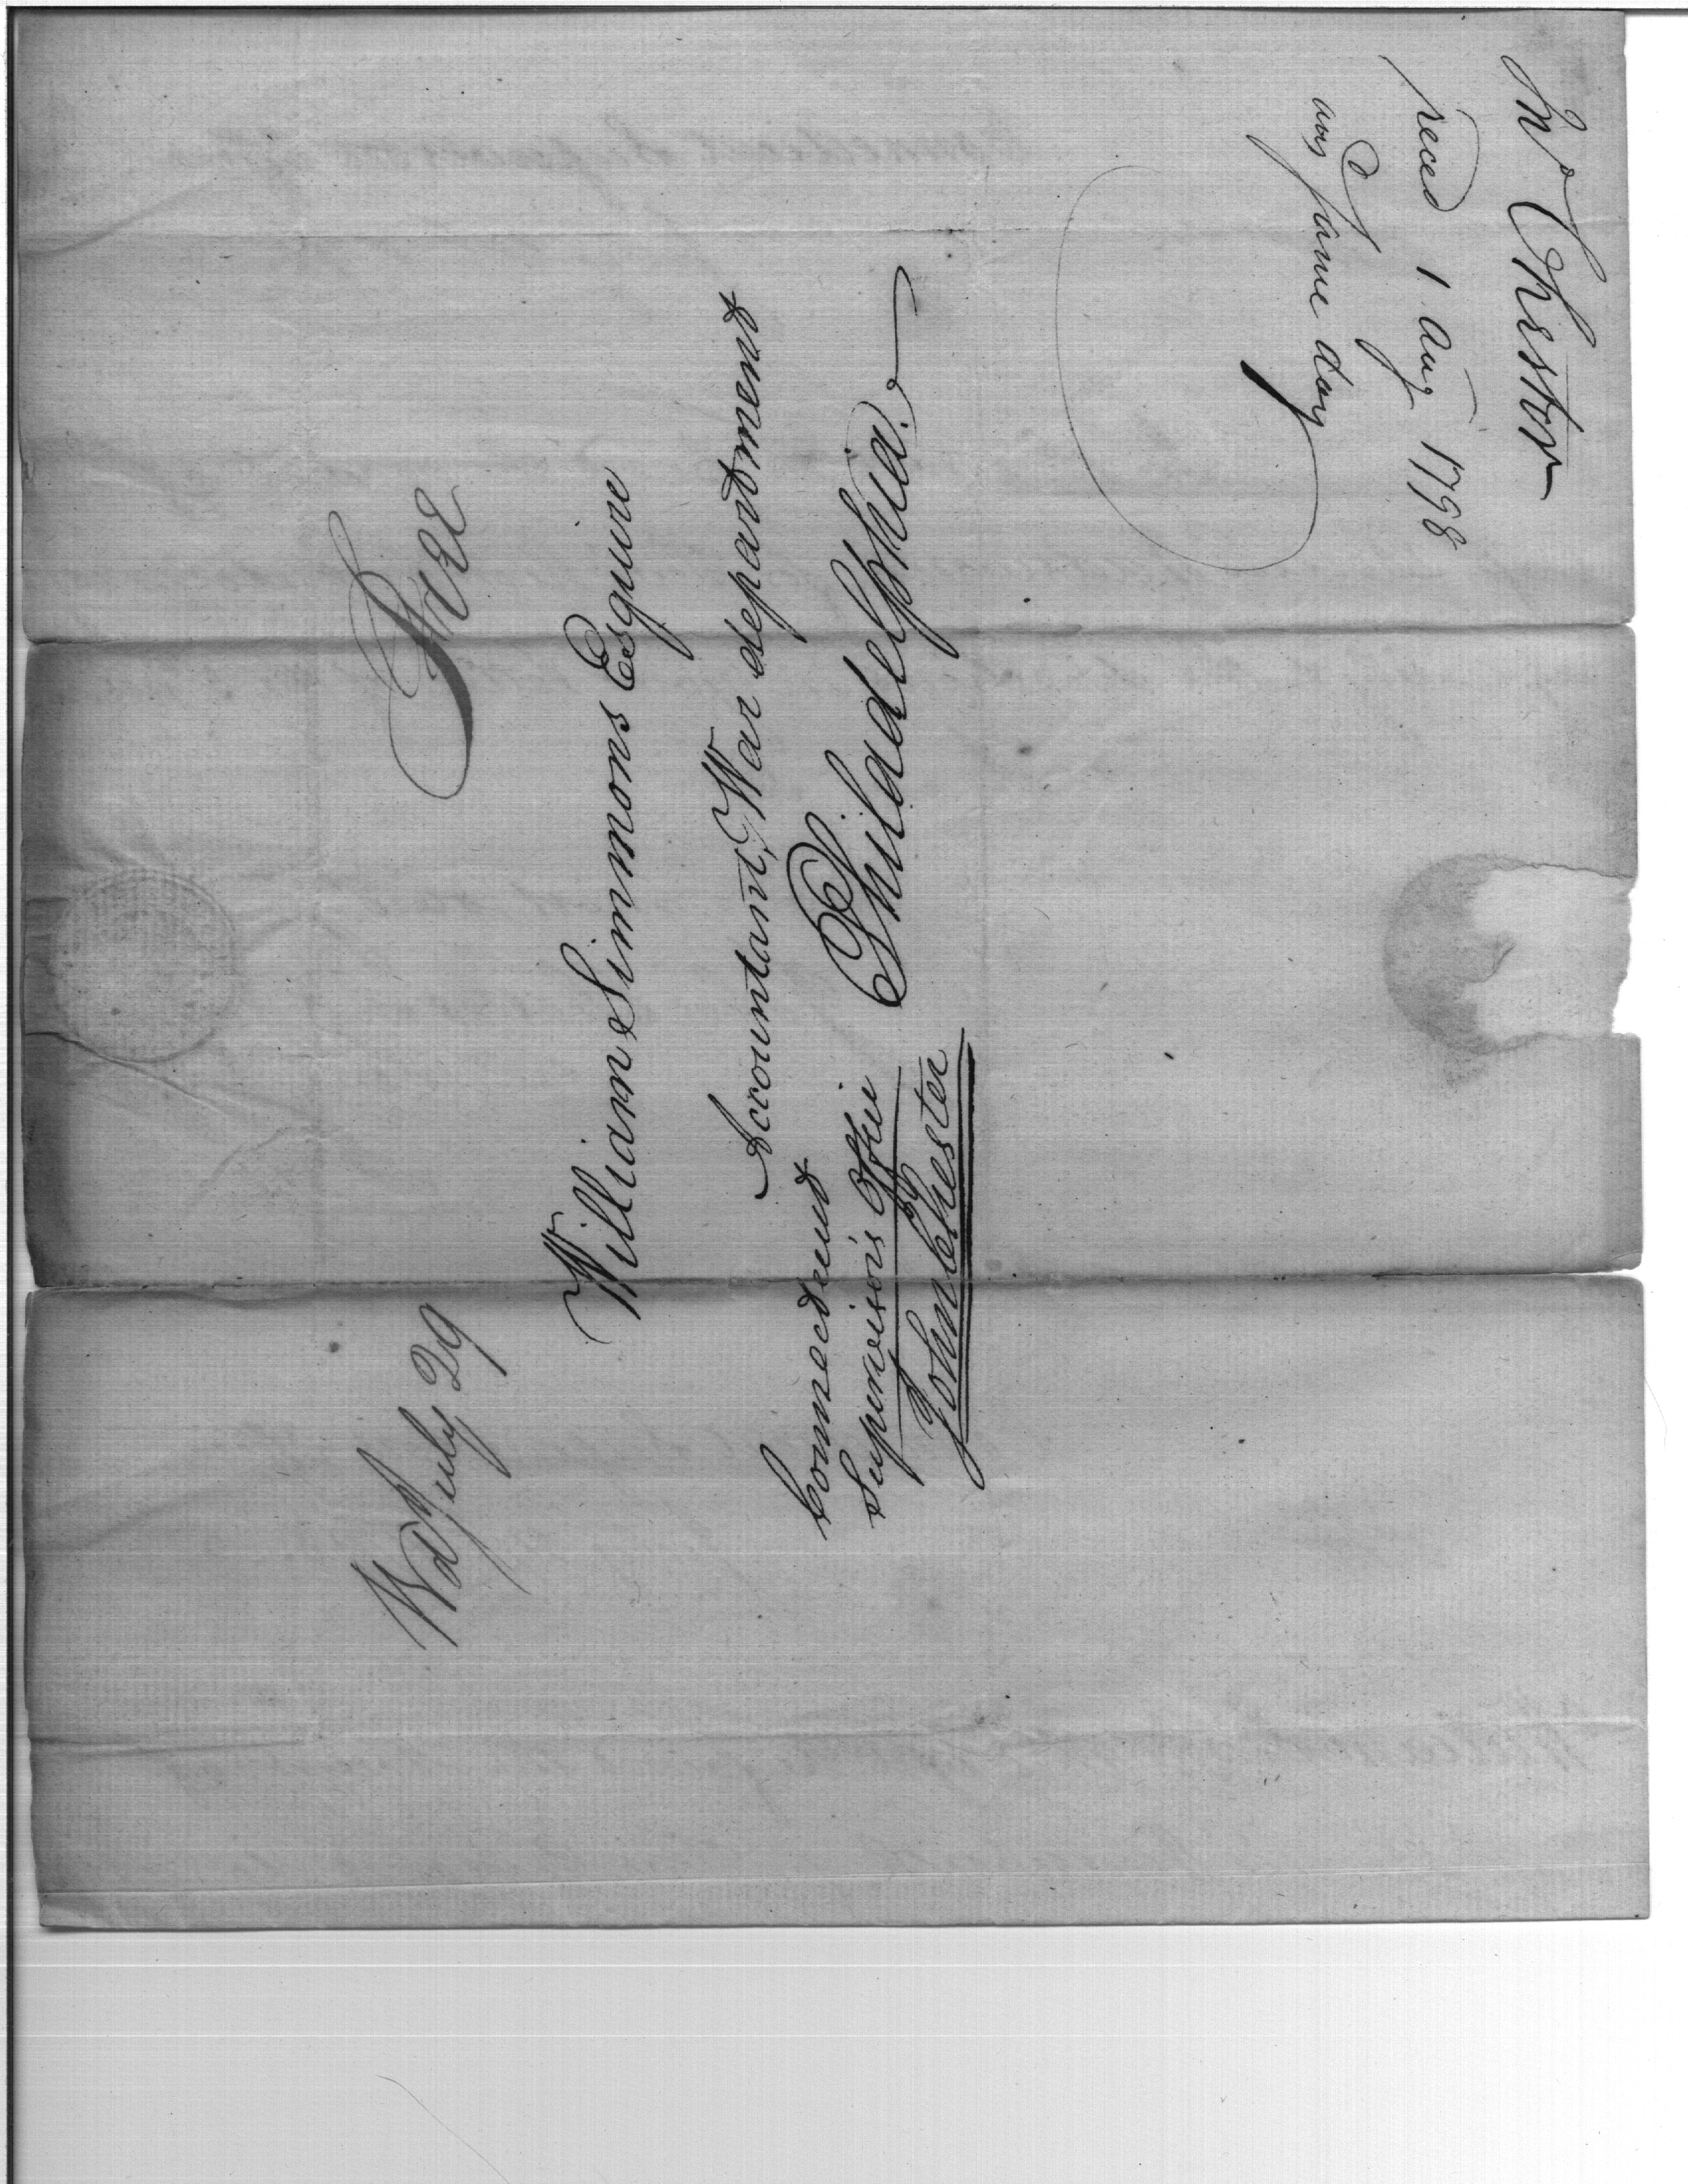 Wd July 29
Free
William Simmons Esquire
Accountant, War department
Philadelphia.
Connecticut
Supervisor's Office
John Chester
Mr Chester
reced 1 Aug 1798
ansd same day